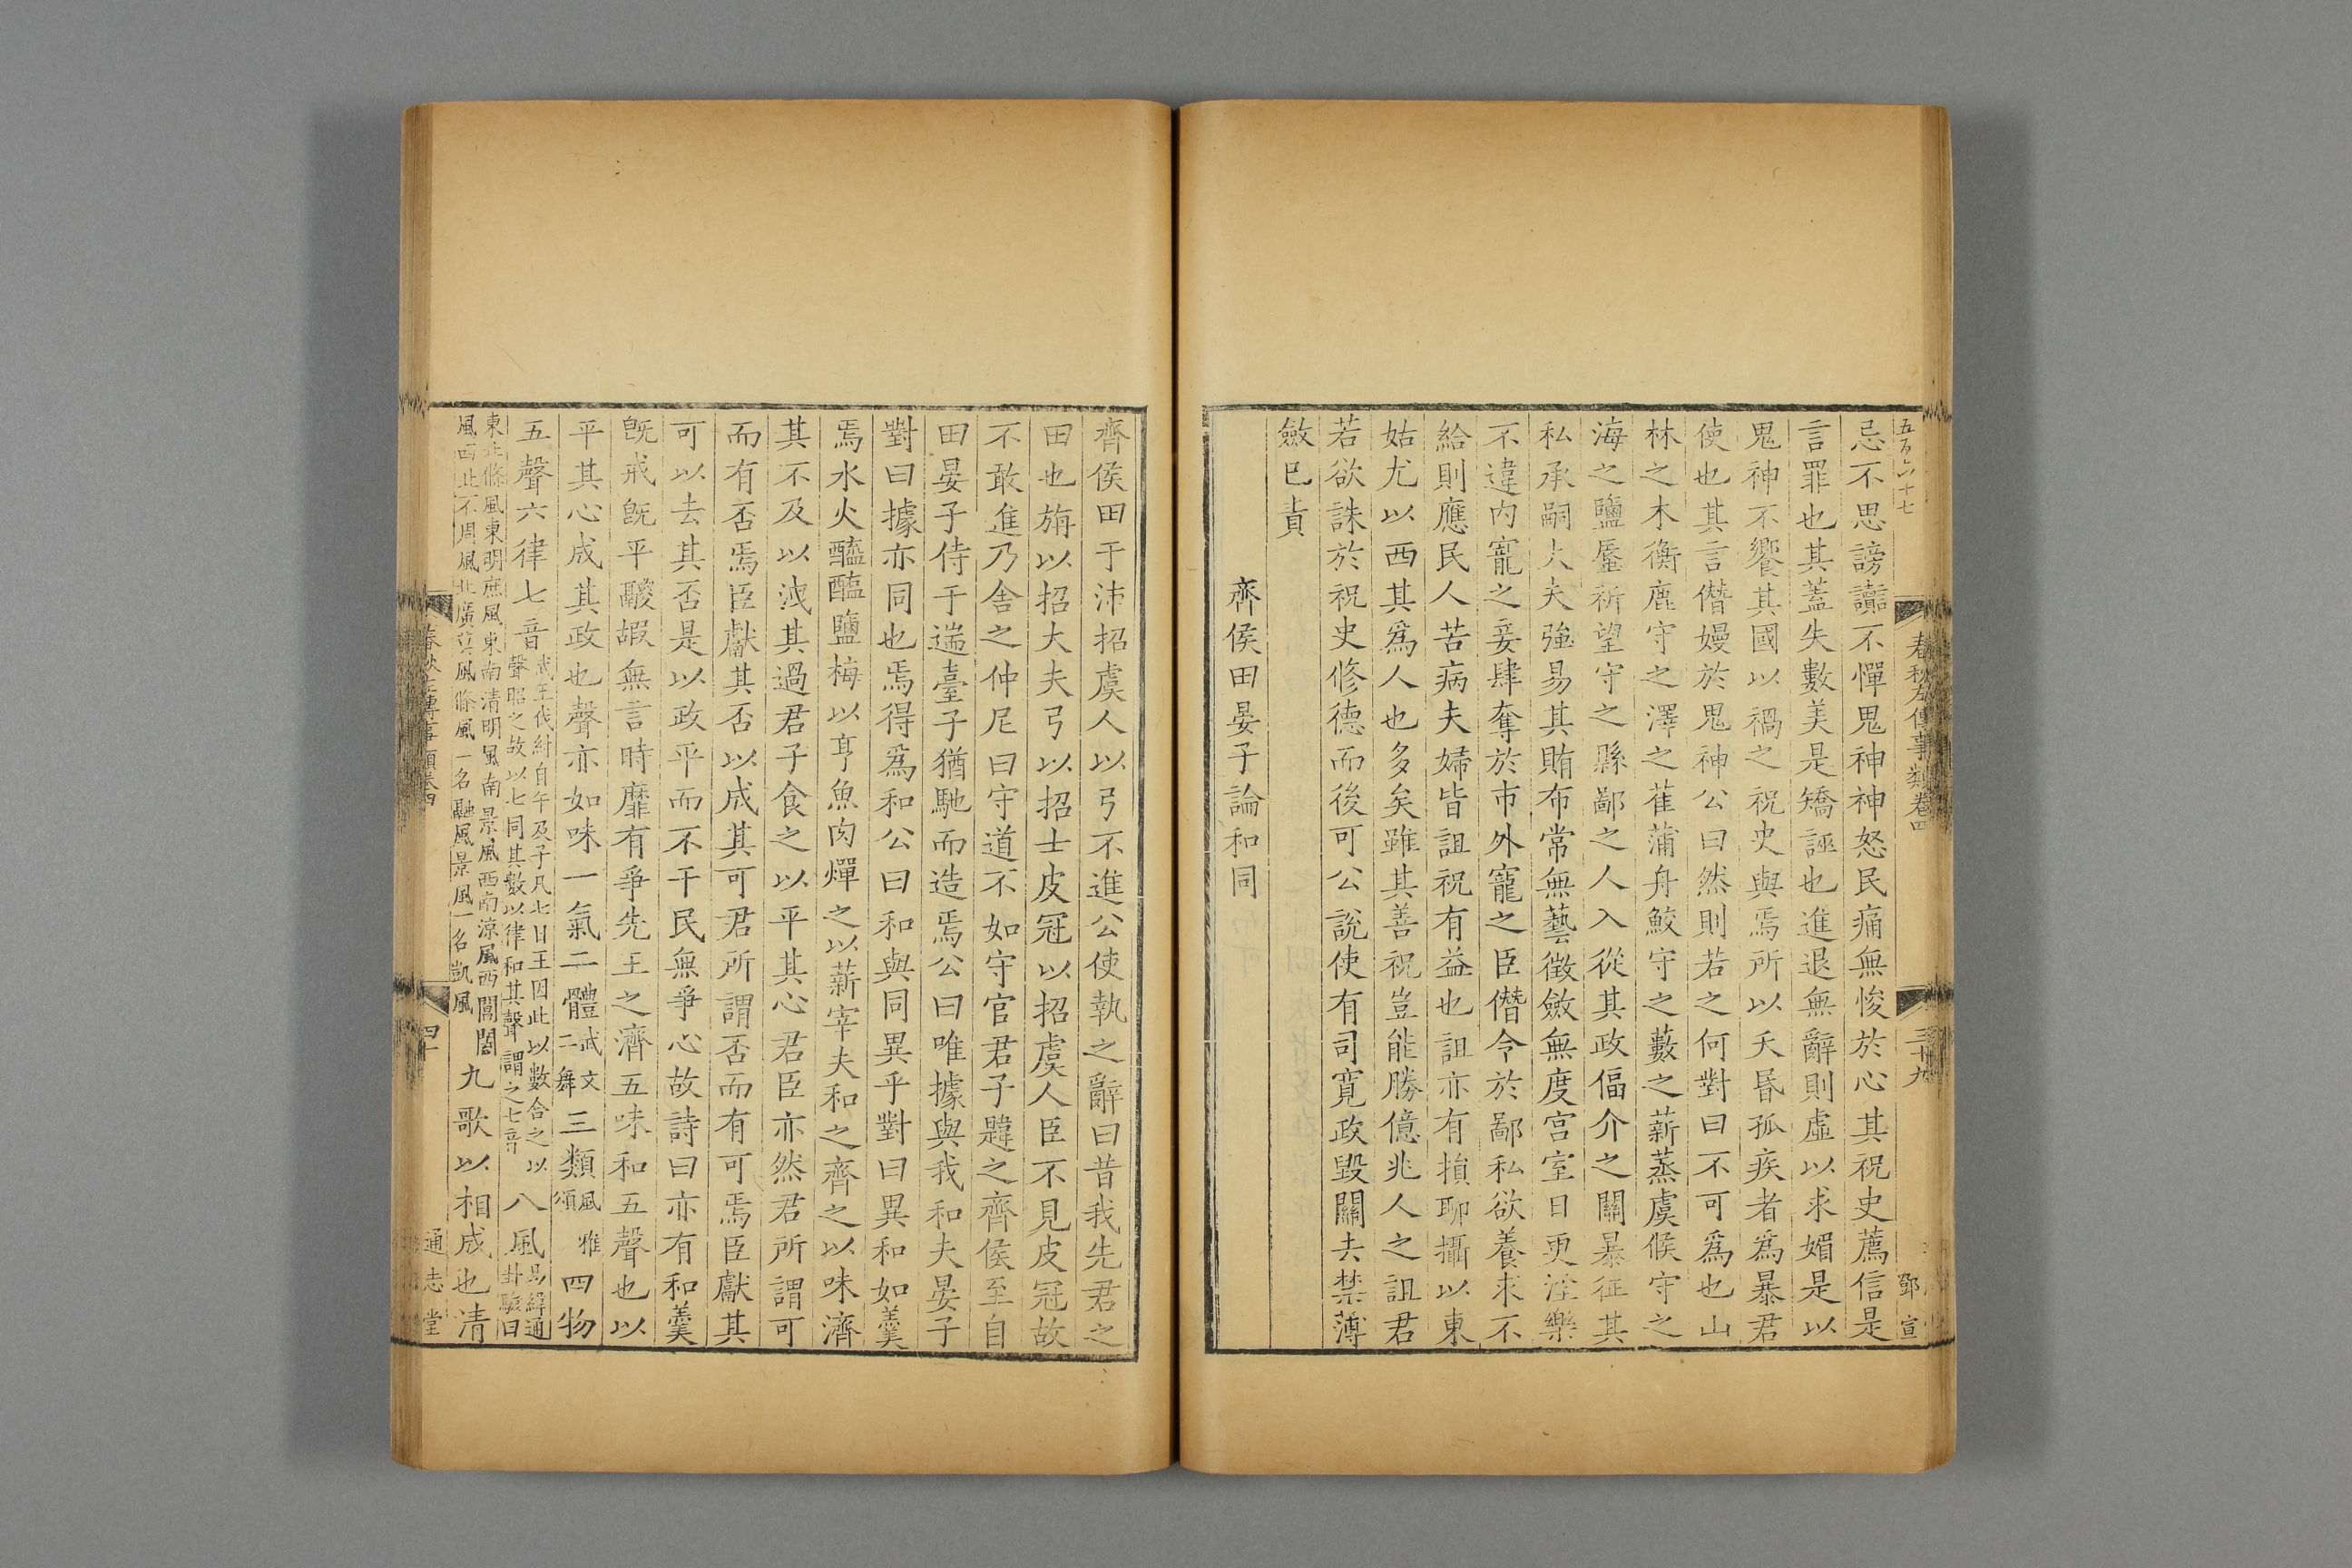 五百六十七
春秋左傳事類卷四
三十九
鄧宣
忌不思謗讟不憚鬼神神怒民痛無悛於心其祝史薦信是
言罪也其蓋失數美是矯誣也進退無辭則虛以求媚是以
鬼神不饗其國以禍之祝史與焉所以夭昬孤疾者爲暴君
使也其言僭嫚於鬼神公曰然則若之何對曰不可爲也山
林之木衡鹿守之澤之萑蒲舟鮫守之藪之薪蒸虞候守之
海之鹽蜃祈望守之縣鄙之人入從其政偪介之關暴征其
私承嗣大夫強易其賄布常無藝徵斂無度宫室日更淫樂
不違内寵之妾肆奪於市外寵之臣僭令於鄙私欲養求不
給則應民人苦病夫婦皆詛祝有益也詛亦有損聊攝以東
姑尤以西其爲人也多矣雖其善祝豈能勝億兆人之詛君
若欲誅於祝史修德而後可公說使有司寬政毀關去禁薄
斂已責
齊侯田晏子論和同
齊侯田于沛招虞人以弓不進公使執之辭曰昔我先君之
田也旃以招大夫弓以招士皮冠以招虞人臣不見皮冠故
不敢進乃舍之仲尼曰守道不如守官君子韙之齊侯至自
田晏子侍于遄臺子猶馳而造焉公曰唯據與我和夫晏子
對曰據亦同也焉得爲和公曰和與同異乎對曰異和如羹
焉水火醯醢鹽梅以亨魚肉燀之以薪宰夫和之齊之以味濟
其不及以洩其過君子食之以平其心君臣亦然君所謂可
而有否焉臣獻其否以成其可君所謂否而有可焉臣獻其
可以去其否是以政平而不干民無爭心故詩曰亦有和羹
旣戒旣平鬷嘏無言時靡有爭先王之濟五味和五聲也以
平其心成其政也聲亦如味一氣二體武文二舞三類風雅頌四物
五聲六律七音武王伐紂自午及子凡七日王因此以數合之以聲昭之故以七同其數以律和其聲謂之七音八風易緯通卦驗曰
東北條風東明庶風東南清明風南景風西南涼風西閶闔風西北不周風北廣莫風條風一名融風景風一名凱風九歌以相成也清
春秋左傳事類卷四
四十
通志堂